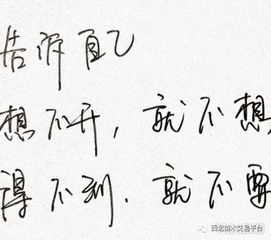 告诉自己
想不开，就不想
得不到．就不要
西北苗木交易平台